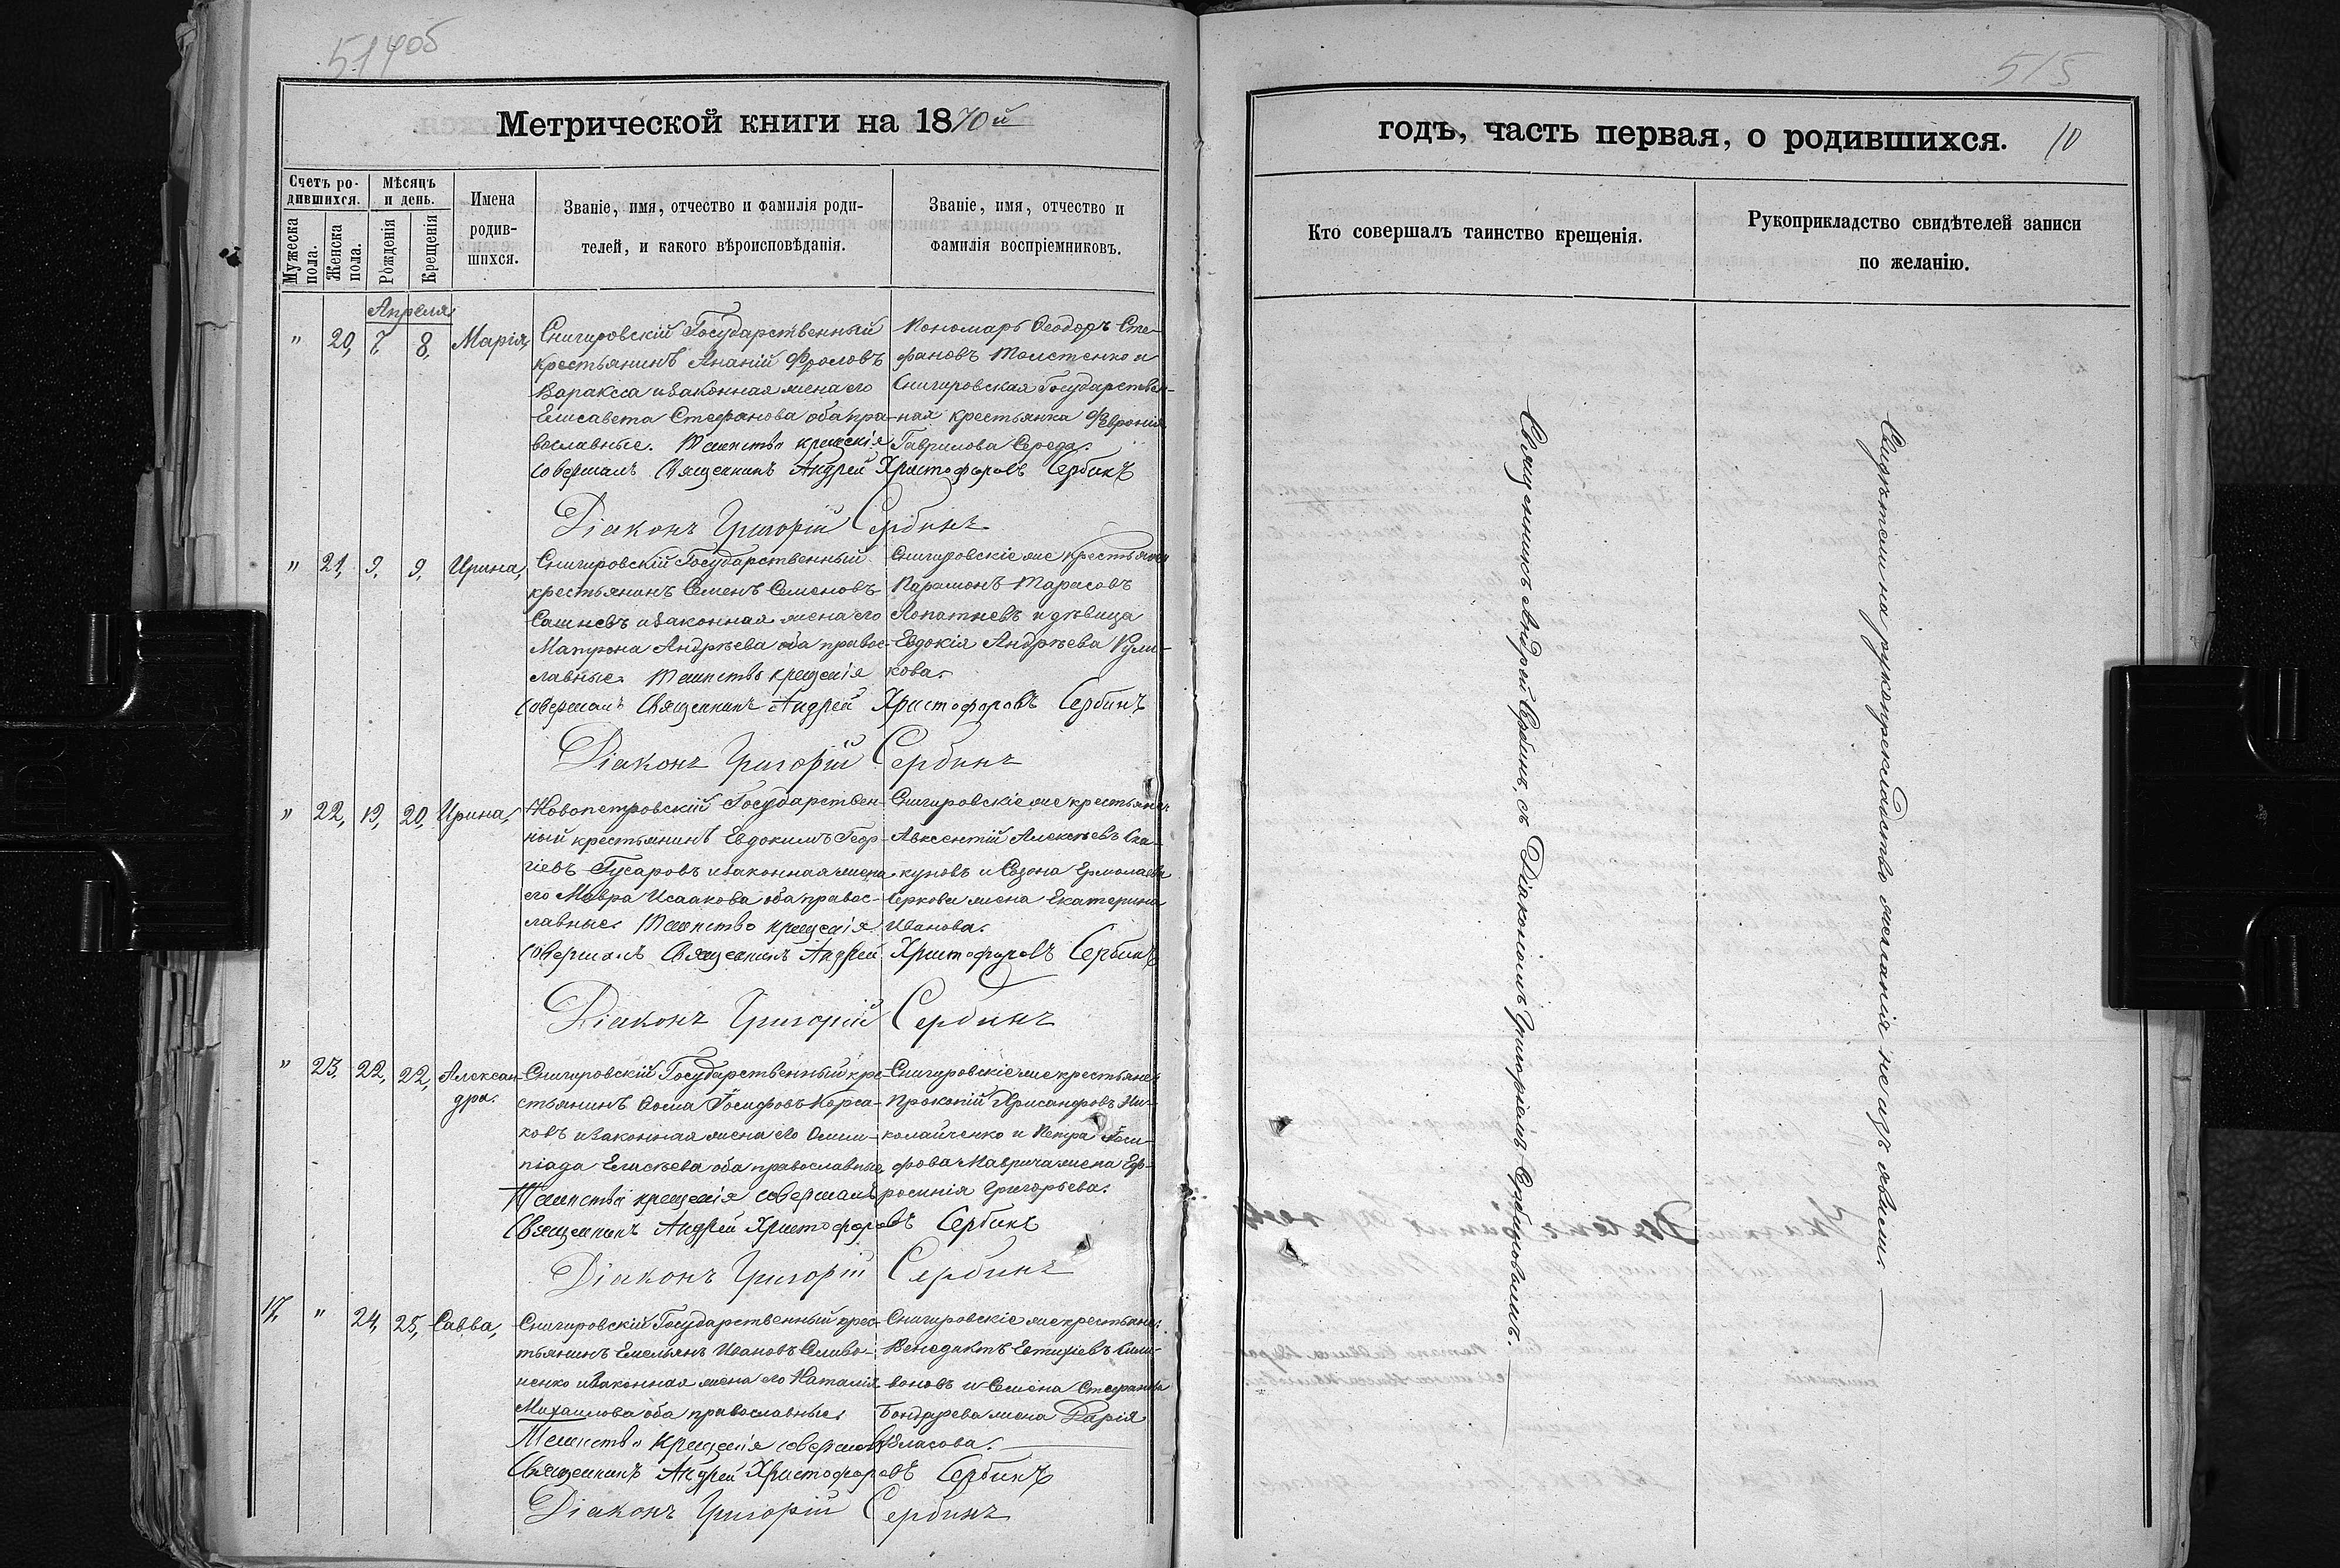 514об
515
Метрической книги на 1870й
годъ, часть первая, о родившихся. 10
Счетъ ро-
дившихся.
Мужеска
пола.
Женска
пола.
Мѣсяцъ
и день.
Рожденія
Крещенія
Имена
родив-
шихся.
Званіе, имя, отчество и фамилія роди-
телей, и какого вѣроисповѣданія.
Званіе, имя, отчество и
фамилія воспріемниковъ.
Кто совершалъ таинство крещенія.
Рукоприкладство свидѣтелей записи
по желанію.
Апреля
" 20, 7, 8, Марія,
Снигировскій Государственный
крестьянинъ Ананій Фроловъ
Варакса и законная жена его
Елисавета Стефанова оба пра-
вославные. Таинство крещенія
совершалъ Священникъ Андрей Христофоровъ Сербинъ
Діаконъ Григорій Сербинъ
Пономарь Ѳеодоръ Сте-
фановъ Толстенко и
Снигировская Государствен-
ная крестьянка Феврония
Гаврилова Середа.
" 21, 9, 9, Ирина,
Снигировскій Государственный
крестьянинъ Семенъ Семеновъ
и законная жена его
Матрона Андрѣева оба правос-
лавные. Таинство крещенія
совершалъ Священникъ Андрей Христофоровъ Сербинъ
Діаконъ Григорій Сербинъ
Снигировскіе же крестьяне:
Парамонъ Тарасовъ
Лопатневъ и дѣвица
Евдокія Андрѣева Кули-
кова.
" 22, 19, 20, Ирина,
Новопетровскій Государствен-
ный крестьянинъ Евдокимъ Геор-
гіевъ Гусаровъ и законная жена
его Мавра Исаакова оба правос-
лавные. Таинство крещенія
совершалъ Священникъ Андрей Христофоровъ Сербинъ
Діаконъ Григорій Сербинъ
Снигировскіе же крестьяне:
Авксентій Алексѣевъ Ска-
куновъ и Ермолаева
жена Екатерина
Иванова.
" 23, 22, 22, Алексан-
дра.
Снигировскій Государственный кре-
стьянинъ Ѳома Іосифовъ Корса-
ковъ и законная жена его Олим-
піада Елисѣева оба православные
Таинство крещенія совершалъ
Священникъ Андрей Христофоровъ Сербинъ
Діаконъ Григорій Сербинъ
Снигировскіе же крестьяне:
Прокопій Хрисанфовъ Ни-
колайченко и Петра Іоси-
фова Маврича жена Еф-
росинія Григорьева.
17, " 24, 25, Савва,
Снигировскій Государственный крес-
тьянинъ Емельянъ Ивановъ Сливо-
ненко и законная жена его Наталія
Михаилова оба православные.
Таинство крещенія совершалъ
Священникъ Андрей Христофоровъ Сербинъ
Діаконъ Григорій Сербинъ
Снигировскіе же крестьяне:
Венедиктъ Евтихіевъ
и Семена Стефанова
Бондарева жена Дарія
Власова.
Священникъ Андрей Сербинъ, съ Діакономъ Григоріемъ Сербиновымъ.
Свидѣтели на рукоприкладство желанія не изъявили.